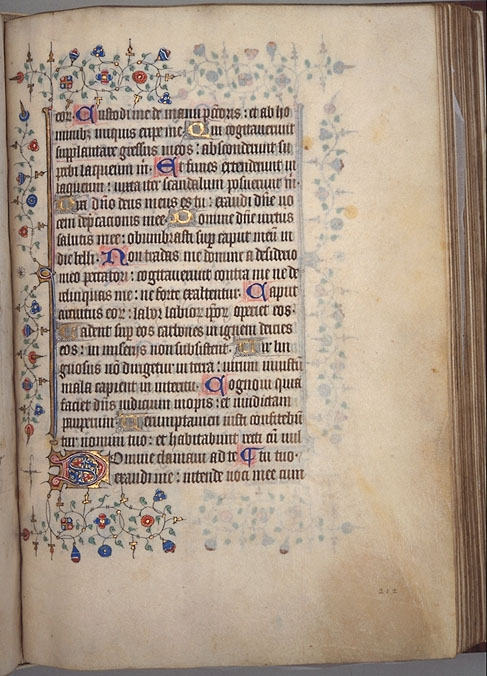 eoꝝ. Custodi me de manu pctōris: et ab ho
minibꝫ iniquis eripe me. Qui cogitauerunt
supplantare gressus meos: absconderunt su
perbi laqueum m̄. Et funes extenderunt in
laqueum: iuxta iter scandalum posuerunt m̄.
Dixi dn̄o deus meus es tu: exaudi dn̄e uo
cem dep̄cationis mee. Domine dn̄e uirtus
salutis mee: obumbrasti sup caput meū in
die belli. Non tradas me domine a desiderio
meo peccatori: cogitauerunt contra me ne de
relinquas me: ne forte exaltentur. Caput
circuitus eoꝝ: labor labioꝝ ipoꝝ operiet eos.
Cadent sup eos carbones in ignem deicies
eos: in miseriis non subsistent. Vir lin
guosus nō dirigetur in terra: uirum iniustū
mala capient in interitu. Cognoui quia
faciet dn̄s iudicium inopis: et uindictam
pauperum. Verumptamen iusti confitebūn
tur nomini tuo: et habitabunt recti cū uul
Domine clamaui ad te tu tuo.
exaudi me: intende uoci mee cum
212